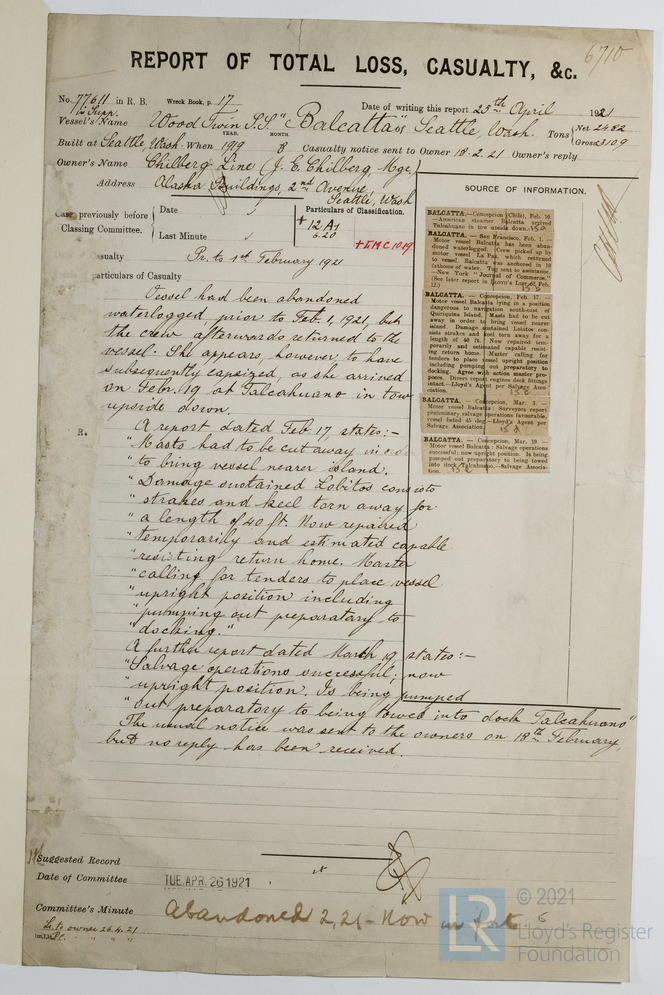 6710
REPORT OF TOTAL LOSS, CASUALTY, &c.
No. 77611 in R. B. Wreck Book, p. 17 Date of writing this report 25th April 1921
in Supp.
Vessel's Name Wood Twin S.S. "Balcatta" of Seattle, Wash. Tons Net 2482 Gross 3109
YEAR. MONTH.
Built at Seattle, Wash. When 1919 8 Casualty notice sent to Owner 18.2.21 Owner's reply
Owner's Name Chilberg Line (J. E. Chilberg, Mgr.)
Address Alaska Buildings, 2nd Avenue,
Seattle, Wash
SOURCE OF INFORMATION.
Case previously before Classing Committee. Date
Last Minute
Particulars of Classification.
+ 12 A1
6.20
+ LMC 10.19
BALCATTA.—Concepcion (Chile), Feb. 20.
—American steamer Balcatta arrived
Talcahuano in tow upside down.
BALCATTA. — San Francisco, Feb. 1. —
Motor vessel Balcatta has been aban-
doned waterlogged. Crew picked up by
motor vessel La Paz, which returned
to vessel. Balcatta was anchored in 10
fathoms of water. Tug sent to assistance.
—New York "Journal of Commerce."
(See later report in Lloyd's List of Feb.
12.)
BALCATTA. — Concepcion, Feb. 17. —
Motor vessel Balcatta lying in a position
dangerous to navigation south-east of
Quiriquina Island. Masts had to be cut
away in order to bring vessel nearer
island. Damage sustained Lobitos con-
sists strakes and keel torn away for a
length of 40 ft. Now repaired tem-
porarily and estimated capable resist-
ing return home. Master calling for
tenders to place vessel upright position
including pumping out preparatory to
docking. Agree with action master pro-
poses. Divers report engines deck fittings
intact.—Lloyd's Agent per Salvage Asso-
ciation.
BALCATTA. — Concepcion, Mar. 3. —
Motor vessel Balcatta: Surveyors report
preliminary salvage operations favourable,
vessel listed 45 deg.—Lloyd's Agent per
Salvage Association.
BALCATTA. — Concepcion, Mar. 19. —
Motor vessel Balcatta: Salvage operations
successful; now upright position. Is being
pumped out preparatory to being towed
into dock Talcahuano.—Salvage Associa-
tion.
Casualty Pr. to 1st February 1921
Particulars of Casualty
Vessel had been abandoned
waterlogged prior to Feb. 1, 1921, but
the crew afterwards returned to the
vessel. She appears, however to have
subsequently capsized, as she arrived
on Febr. 19 at Talcahuano in tow
upside down.
R.
A report dated Feb 17, states:-
"Masts had to be cut away in order
"to bring vessel nearer island.
"Damage sustained Lobitos consists
"strakes and keel torn away for
"a length of 40 ft. Now repaired
"temporarily and estimated capable
"resisting return home. Master
"calling for tenders to place vessel
"upright position including
"pumping out preparatory to
"docking."
A further report dated March 19 states:-
"Salvage operations successful; now
"upright position. Is being pumped
"out preparatory to being towed into dock Talcahuano"
The usual notice was sent to the owners on 18th February,
but no reply has been received.
Suggested Record
Date of Committee TUE. APR. 26 1921
Committee's Minute Abandoned 2, 21 - Now in port
L. to owner 26.4.21
© 2021
LR
Lloyd's Register
Foundation